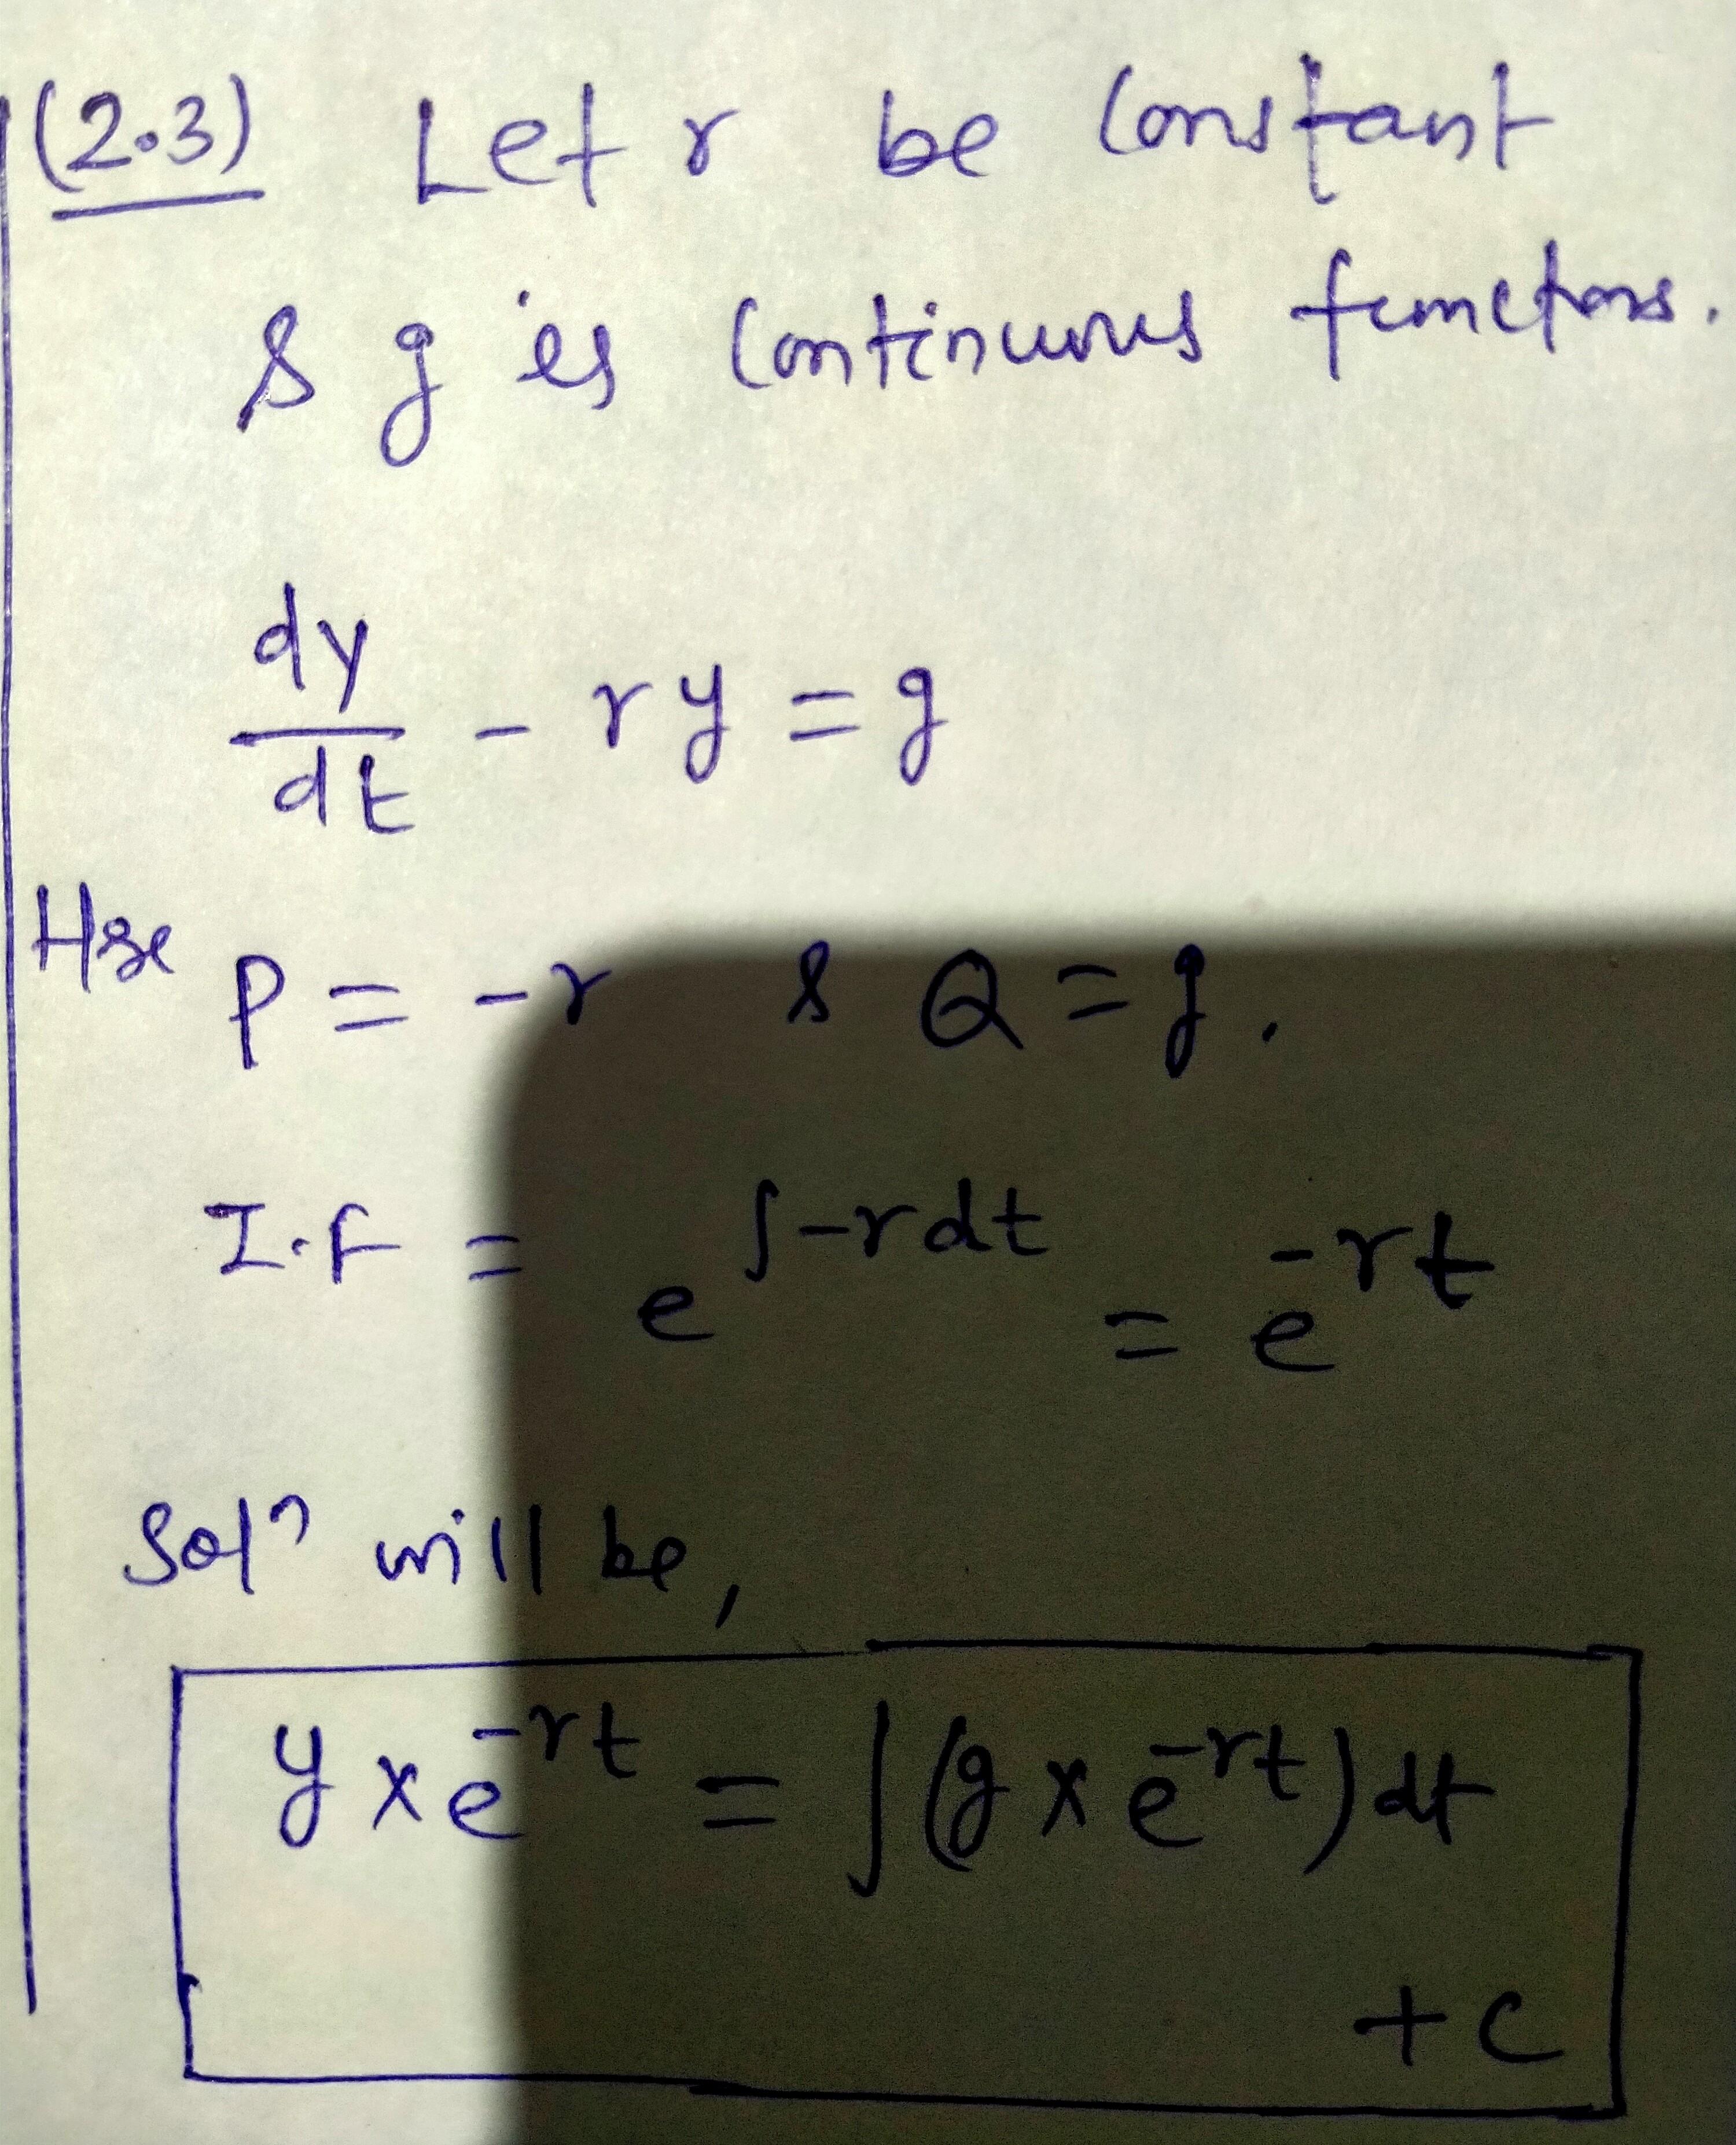 (2.3) Let r be constant
& g is continuous functions.
dy/dt - ry = g
Here P = -r & Q = g.
I.F = e^∫-rdt = e^-rt
Solⁿ will be,
y × e^-rt = ∫(g × e^-rt) dt
+ c